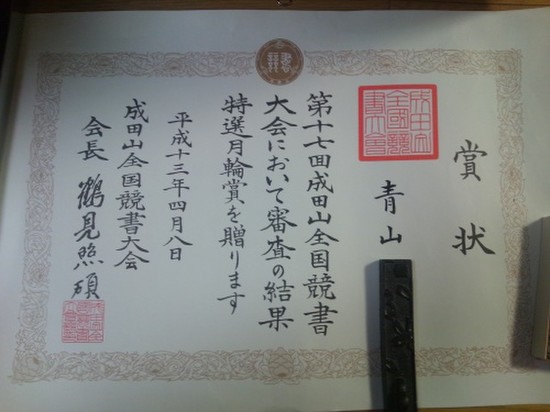 賞状
青山
第十七回成田山全国競書
大会において審査の結果
特選月輪賞を贈ります
平成十三年四月八日
成田山全国競書大会
会長 鶴見照碩